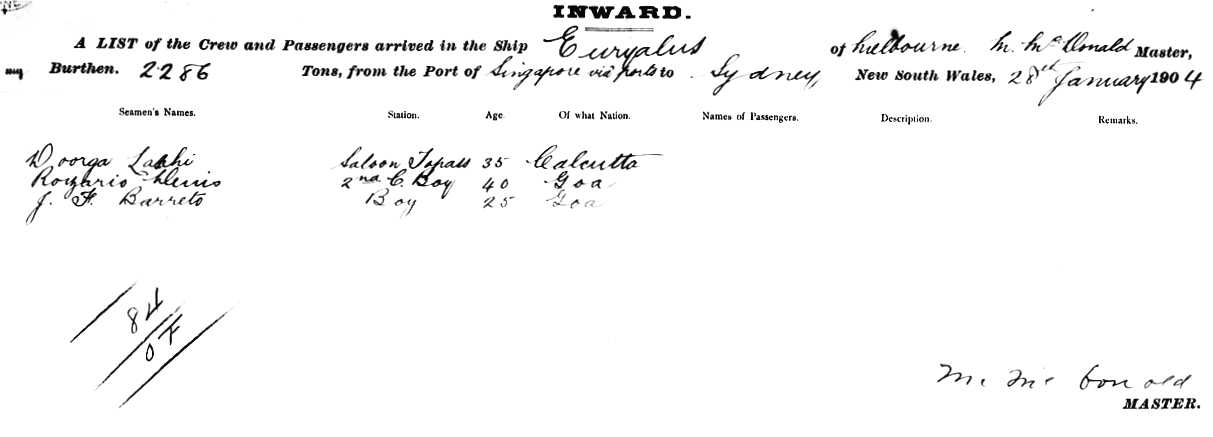 INWARD.
A LIST of the Crew and Passengers arrived in the Ship Euryalus of Melbourne. M. McDonald Master,
Burthen. 2286 Tons, from the Port of Singapore via ports to Sydney, New South Wales, 28th January 1904
Seamen's Names. Station. Age. Of what Nation. Names of Passengers. Description. Remarks.
Doorga Lakhi Saloon Topass 35 Calcutta
Rozario Denis 2nd C. Boy 40 Goa
J. F. Barreto Boy 25 Goa
84
M. McDonald
MASTER.